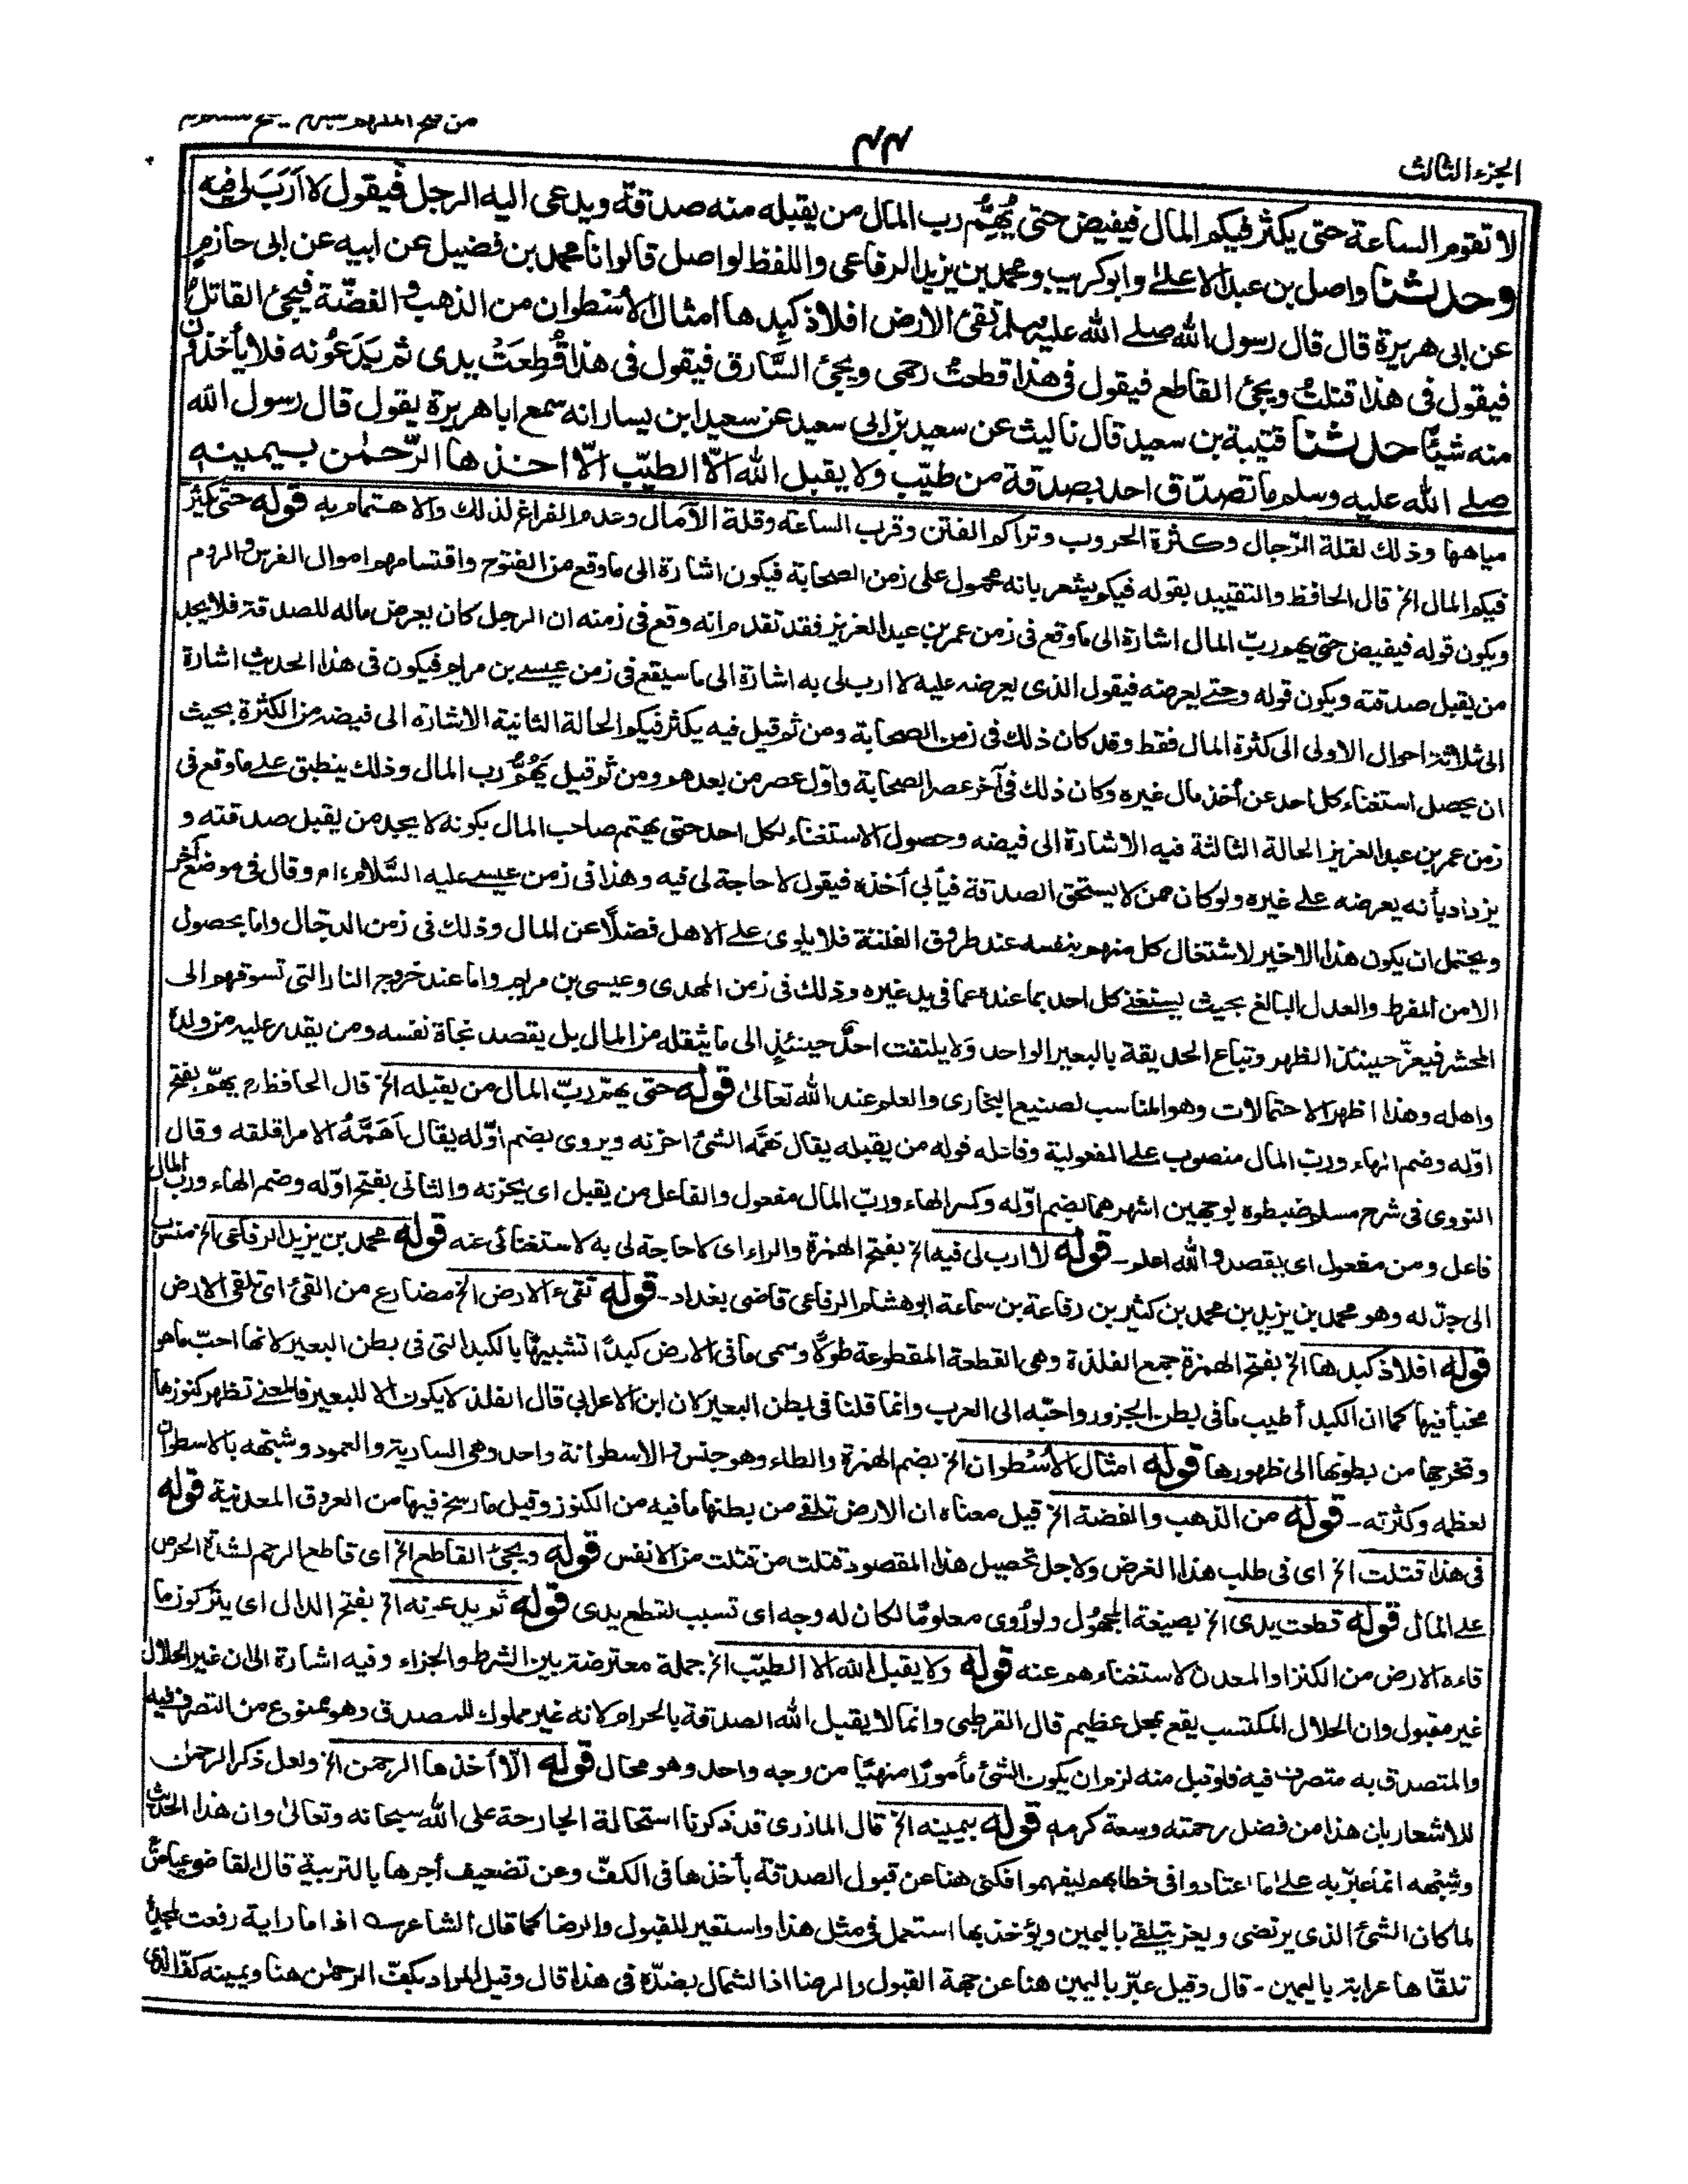 الجزء الثالث
٤٤
لا تقوم الساعة حتى يكثر فيكم المال فيفيض حتى يُهِمُّ رب المال من يقبله منه صدقة ويدعى اليه الرجل فيقول لا أَرَبَ لى فيه
وحدثنا واصل بن عبد الاعلى وابو كريب ومحمد بن يزيد الرفاعى واللفظ لواصل قالوا نا محمد بن فضيل عن ابيه عن ابى حازم
عن ابى هريرة قال قال رسول الله صلى الله عليه وسلم تقئ الارض افلاذ كبدها امثال الأُسْطوان من الذهب والفضّة فيجئ القاتل
فيقول فى هذا قتلتُ ويجئ القاطع فيقول فى هذا قطعتُ رحمى ويجئ السَّارق فيقول فى هذا قُطِعَتْ يدى ثم يَدَعُونه فلا يأخذون
منه شيئًا حدثنا قتيبة بن سعيد قال نا ليث عن سعيد بن ابى سعيد عن سعيد ابن يسار انه سمع ابا هريرة يقول قال رسول الله
صلى الله عليه وسلم ما تصدّق احد بصدقة من طيّب ولا يقبل الله الّا الطيّب الّا اخذها الرّحمٰن بيمينه
مياهها وذلك لقلة الرّجال وكثرة الحروب وتراكم الفتن وقرب الساعة وقلة الآمال وعدم الفراغ لذلك والاهتمام به قوله حتى يكثر
فيكم المال الخ قال الحافظ والتقييد بقوله فيكم يشعر بانه محمول على زمن الصحابة فيكون اشارة الى ما وقع من الفتوح واقتسامهم اموال الفرس والروم
ويكون قوله فيفيض حتى يهم ربّ المال اشارة الى ما وقع فى زمن عمر بن عبد العزيز فقد تقدم انه وقع فى زمنه ان الرجل كان يعرض ماله للصدقة فلا يجد
من يقبل صدقته ويكون قوله وحتى يعرضه فيقول الذى يعرضه عليه لا ارب لى به اشارة الى ما سيقع فى زمن عيسى بن مريم فيكون فى هذا الحديث اشارة
الى ثلاثة احوال الاولى الى كثرة المال فقط وقد كان ذلك فى زمن الصحابة ومن ثم قيل فيه يكثر فيكم الحالة الثانية الاشارة الى فيضه من الكثرة بحيث
ان يحصل استغناء كل احد عن أخذ مال غيره وكان ذلك فى آخر عصر الصحابة واوّل عصر من بعدهم ومن ثم قيل يَهُمُّ رب المال وذلك ينطبق على ما وقع فى
زمن عمر بن عبد العزيز الحالة الثالثة فيه الاشارة الى فيضه وحصول الاستغناء لكل احد حتى يهتم صاحب المال بكونه لا يجد من يقبل صدقته و
يزداد بأنه يعرضه على غيره ولو كان ممن لا يستحق الصدقة فيأبى أخذه فيقول لا حاجة لى فيه وهذا فى زمن عيسى عليه السَّلام، اه وقال فى موضع أخر
ويحتمل ان يكون هذا الاخير لاشتغال كل منهم بنفسه عند طروق الفتنة فلا يلوى على الاهل فضلًا عن المال وذلك فى زمن الدجّال واما بحصول
الامن المفرط والعدل البالغ بحيث يستغنى كل احد بما عنده عما فى يد غيره وذلك فى زمن المهدى وعيسى بن مريم واما عند خروج النار التى تسوقهم الى
المحشر فيعزّ حينئذ الظهر وتباع الحديقة بالبعير الواحد ولا يلتفت احدٌ حينئذٍ الى ما يثقله من المال بل يقصد نجاة نفسه ومن يقدر عليه من ولده
واهله وهذا اظهر الاحتمالات وهو المناسب لصنيع البخارى والعلم عند الله تعالىٰ قوله حتى يهمّ ربّ المال من يقبله الخ قال الحافظ رح يهمّ بفتح
اوّله وضم الهاء وربّ المال منصوب على المفعولية وفاعله قوله من يقبله يقال هَمَّه الشئ احزنه ويروى بضم اوّله يقال أَهَمَّهُ الامر اقلقه وقال
النووى فى شرح مسلم ضبطوه بوجهين اشهرهما بضم اوّله وكسر الهاء وربّ المال مفعول والفاعل من يقبل اى يحزنه والثانى بفتح اوّله وضم الهاء وربّ المال
فاعل ومن مفعول اى يقصد والله اعلم ـ قوله لا ارب لى فيه الخ بفتح الهمزة والراء اى لا حاجة لى به لاستغنائى عنه قوله محمد بن يزيد الرفاعى الخ منسوب
الى جدّ له وهو محمد بن يزيد بن محمد بن كثير بن رفاعة بن سماعة ابو هشام الرفاعى قاضى بغداد ـ قوله تقىء الارض الخ مضارع من القئ اى تلقى الارض
قوله افلاذ كبدها الخ بفتح الهمزة جمع الفلذة وهى القطعة المقطوعة طولًا وسمى ما فى الارض كبدًا تشبيهًا بالكبد التى فى بطن البعير لانها احبّ ما هو
مخبأ فيها كما ان الكبد أطيب ما فى بطن الجزور واحبّه الى العرب وانما قلنا فى بطن البعير لان ابن الاعرابى قال الفلذ لا يكون الا للبعير فالمعنى تظهر كنوزها
وتخرجها من بطونها الى ظهورها قوله امثال الأُسْطوان الخ بضم الهمزة والطاء وهو جنس الاسطوانة واحد وهى السارية والعمود وشبّهه بالاسطوان
لعظمه وكثرته ـ قوله من الذهب والفضة الخ قيل معناه ان الارض تلقى من بطنها ما فيه من الكنوز وقيل ما رسخ فيها من العروق المعدنية قوله
فى هذا قتلت الخ اى فى طلب هذا الغرض ولاجل تحصيل هذا المقصود قتلت من قتلت من الانفس قوله ويجئ القاطع الخ اى قاطع الرحم لشدة الحرص
على المال قوله قطعت يدى الخ بصيغة المجهُول ولو رُوى معلومًا لكان له وجه اى تسبب لقطع يدى قوله ثم يدعونه الخ بفتح الدال اى يتركون ما
قاءه الارض من الكنز او المعدن لاستغناءهم عنه قوله ولا يقبل الله الا الطيّب الخ جملة معترضة بين الشرط والجزاء وفيه اشارة الى ان غير الحلال
غير مقبول وان الحلال المكتسب يقع بمحل عظيم قال القرطبى وانما لا يقبل الله الصدقة بالحرام لانه غير مملوك للمصدق وهو ممنوع من التصرف فيه
والمتصدق به متصرف فيه فلو قبل منه لزم ان يكون الشئ مأمورًا منهيًا من وجه واحد وهو محال قوله الّا أخذها الرحمن الخ ولعل ذكر الرحمن
للاشعار بان هذا من فضل رحمته وسعة كرمه قوله بيمينه الخ قال الماذرى قد ذكرنا استحالة الجارحة على الله سبحانه وتعالىٰ وان هذا الحديث
وشبْهه انما عبّر به على ما اعتادوا فى خطابهم ليفهموا فكنى هنا عن قبول الصدقة بأخذها فى الكفّ وعن تضعيف أجرها بالتربية قال القاضى عياض
لما كان الشئ الذى يرتضى ويعز يتلقى باليمين ويؤخذ بها استعمل فى مثل هذا واستعير للقبول والرضا كما قال الشاعر ـه اذا ما راية رفعت لمجد
تلقّاها عرابة باليمين ـ قال وقيل عبّر باليمين هنا عن جهة القبول والرضا اذ الشمال بضدّه فى هذا قال وقيل المراد بكفّ الرحمٰن هنا ويمينه كفّ الذى